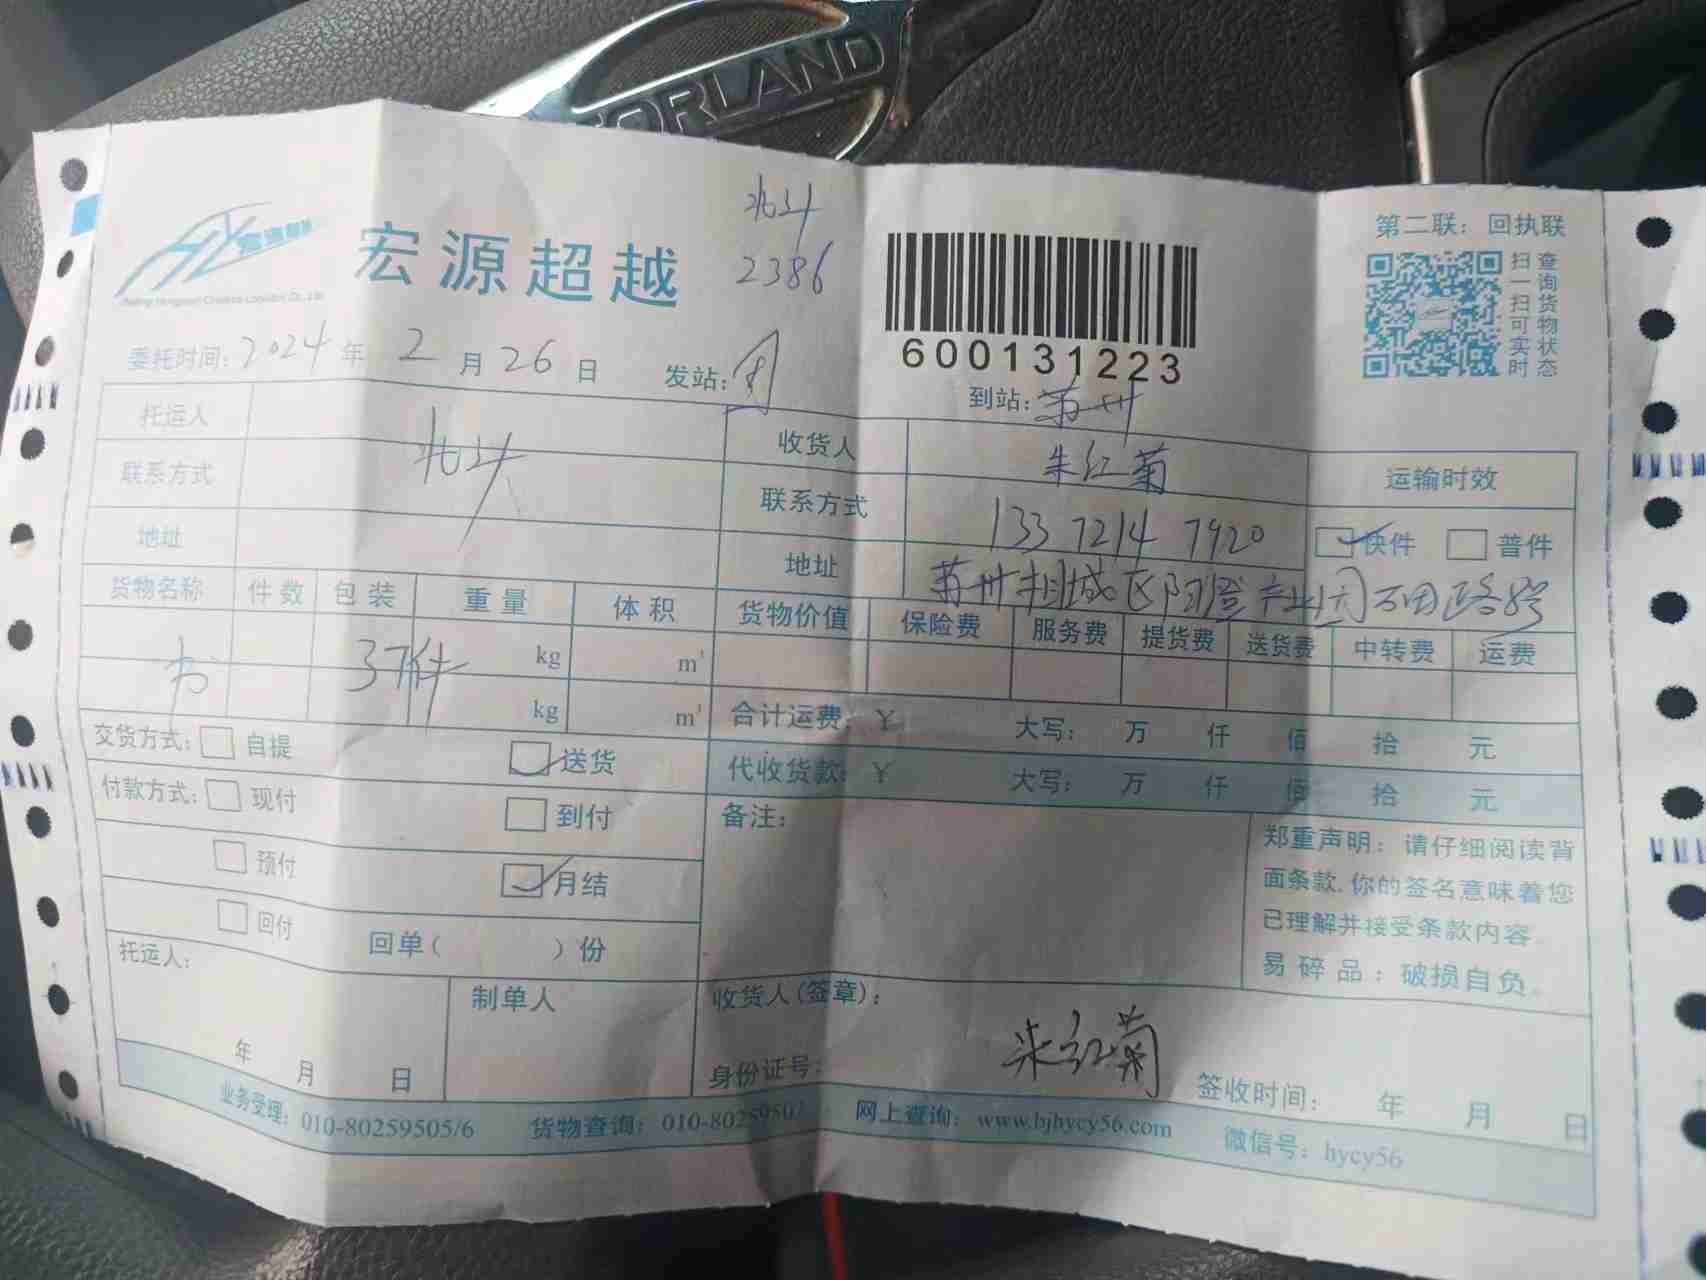 FORLAND
北斗
2386
宏源超越
600131223
第二联：回执联
扫一扫可实时
查询货物状态
委托时间：2024年2月26日 发站： 到站：苏州
托运人 北斗 收货人 朱红菊 运输时效
联系方式 联系方式 133 7214 7920 快件 普件
地址 地址 苏州相城区阳澄产业园
货物名称 件数 包装 重量 体积 货物价值 保险费 服务费 提货费 送货费 中转费 运费
书 37件 kg m³
kg m³ 合计运费：¥ 大写： 万 仟 佰 拾 元
交货方式： 自提 送货 代收货款：¥ 大写： 万 仟 佰 拾 元
付款方式： 现付 到付 备注：
预付 月结
回付 回单（ ）份
郑重声明：请仔细阅读背
面条款，你的签名意味着您
已理解并接受条款内容。
易碎品：破损自负。
托运人： 制单人 收货人(签章)： 朱红菊
年 月 日 身份证号： 签收时间： 年 月 日
业务受理：010-80259505/6 货物查询：010-80259507 网上查询：www.bjhycy56.com 微信号：hycy56